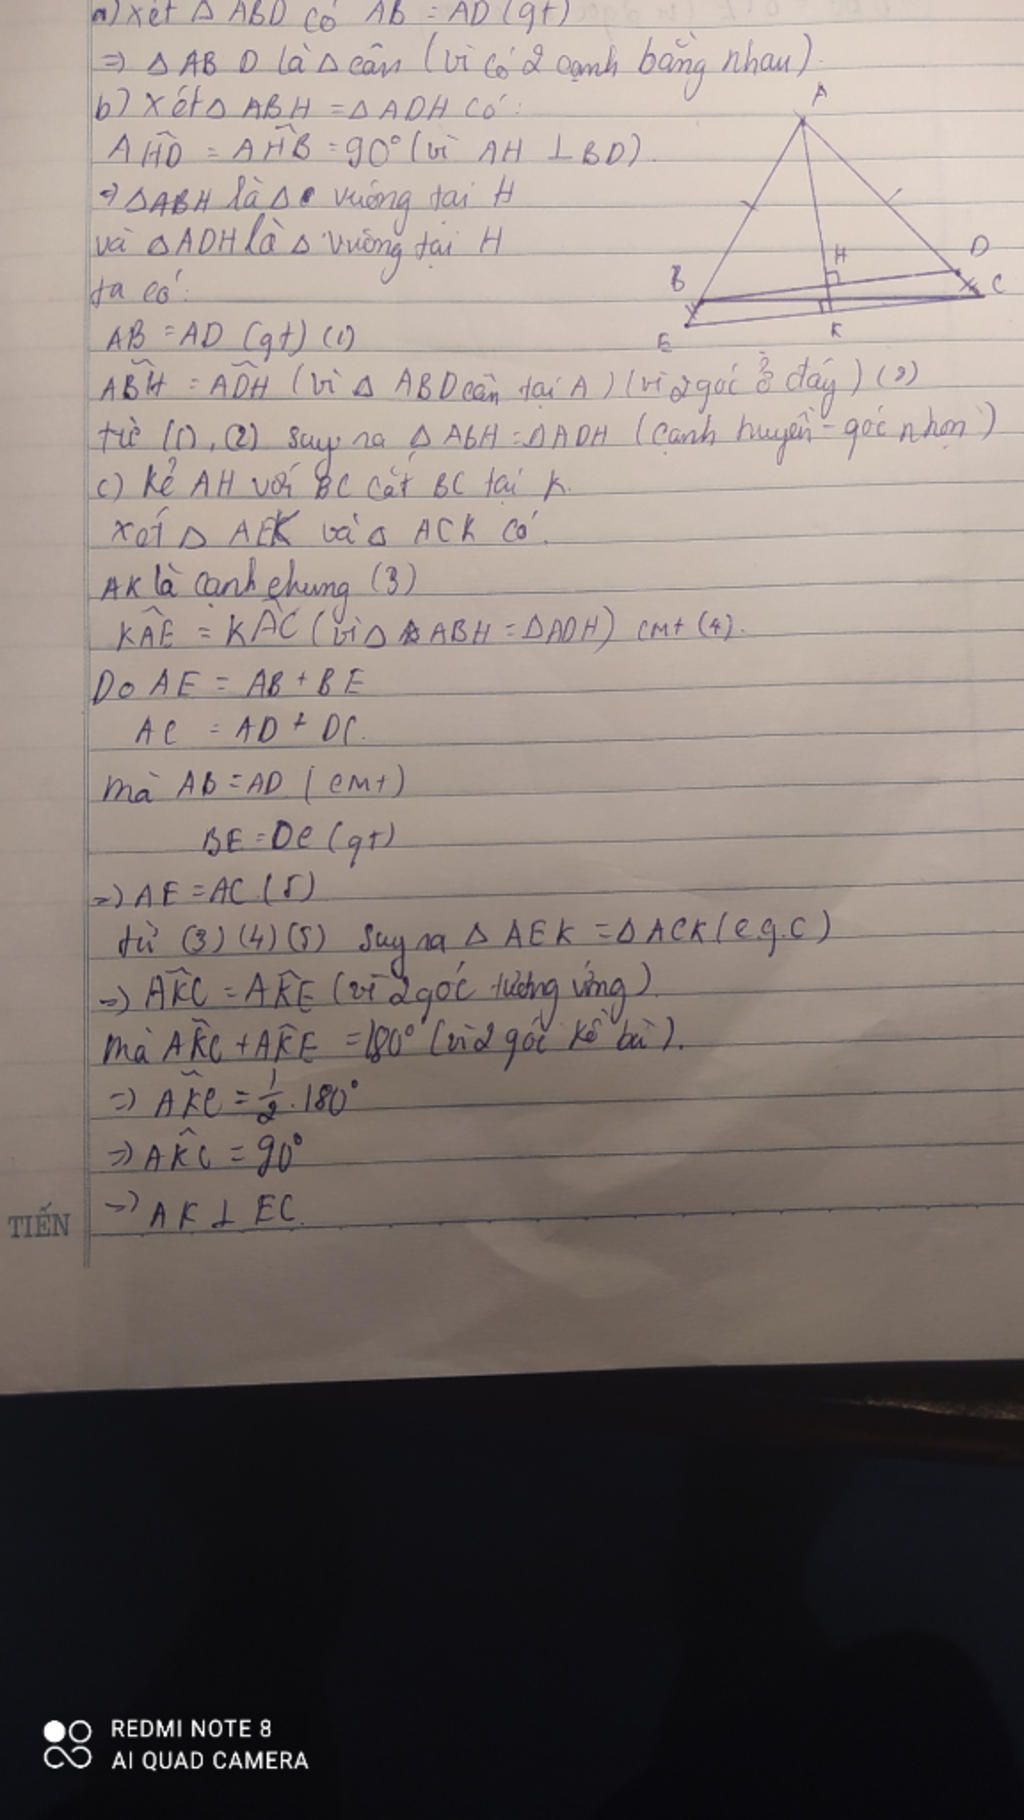 a) xét Δ ABD có AB = AD (gt)
=> Δ ABD là Δ cân (vì có 2 cạnh bằng nhau)
b) xét Δ ABH = Δ ADH có:
AHD = AHB = 90° (vì AH ⊥ BD)
=> Δ ABH là Δ vuông tại H
và Δ ADH là Δ vuông tại H
ta có:
AB = AD (gt) (1)
ABH = ADH (vì Δ ABD cân tại A) (vì 2 góc ở đáy) (2)
từ (1), (2) suy ra Δ ABH = Δ ADH (cạnh huyền - góc nhọn)
c) kẻ AH với BC cắt BC tại K.
xét Δ AEK và Δ ACK có.
AK là cạnh chung (3)
KÂE = KÂC (vì Δ ABH = Δ ADH) cmt (4).
Do AE = AB + BE
AC = AD + DC.
mà AB = AD (cmt)
BE = DC (gt)
=> AE = AC (5)
từ (3) (4) (5) suy ra Δ AEK = Δ ACK (c.g.c)
=> AKC = AKE (vì 2 góc tương ứng)
mà AKC + AKE = 180° (vì 2 góc kề bù).
=> AKC = 1/2 . 180°
=> AKC = 90°
=> AK ⊥ EC.
A
H
D
B
C
E
K
TIẾN
REDMI NOTE 8
AI QUAD CAMERA